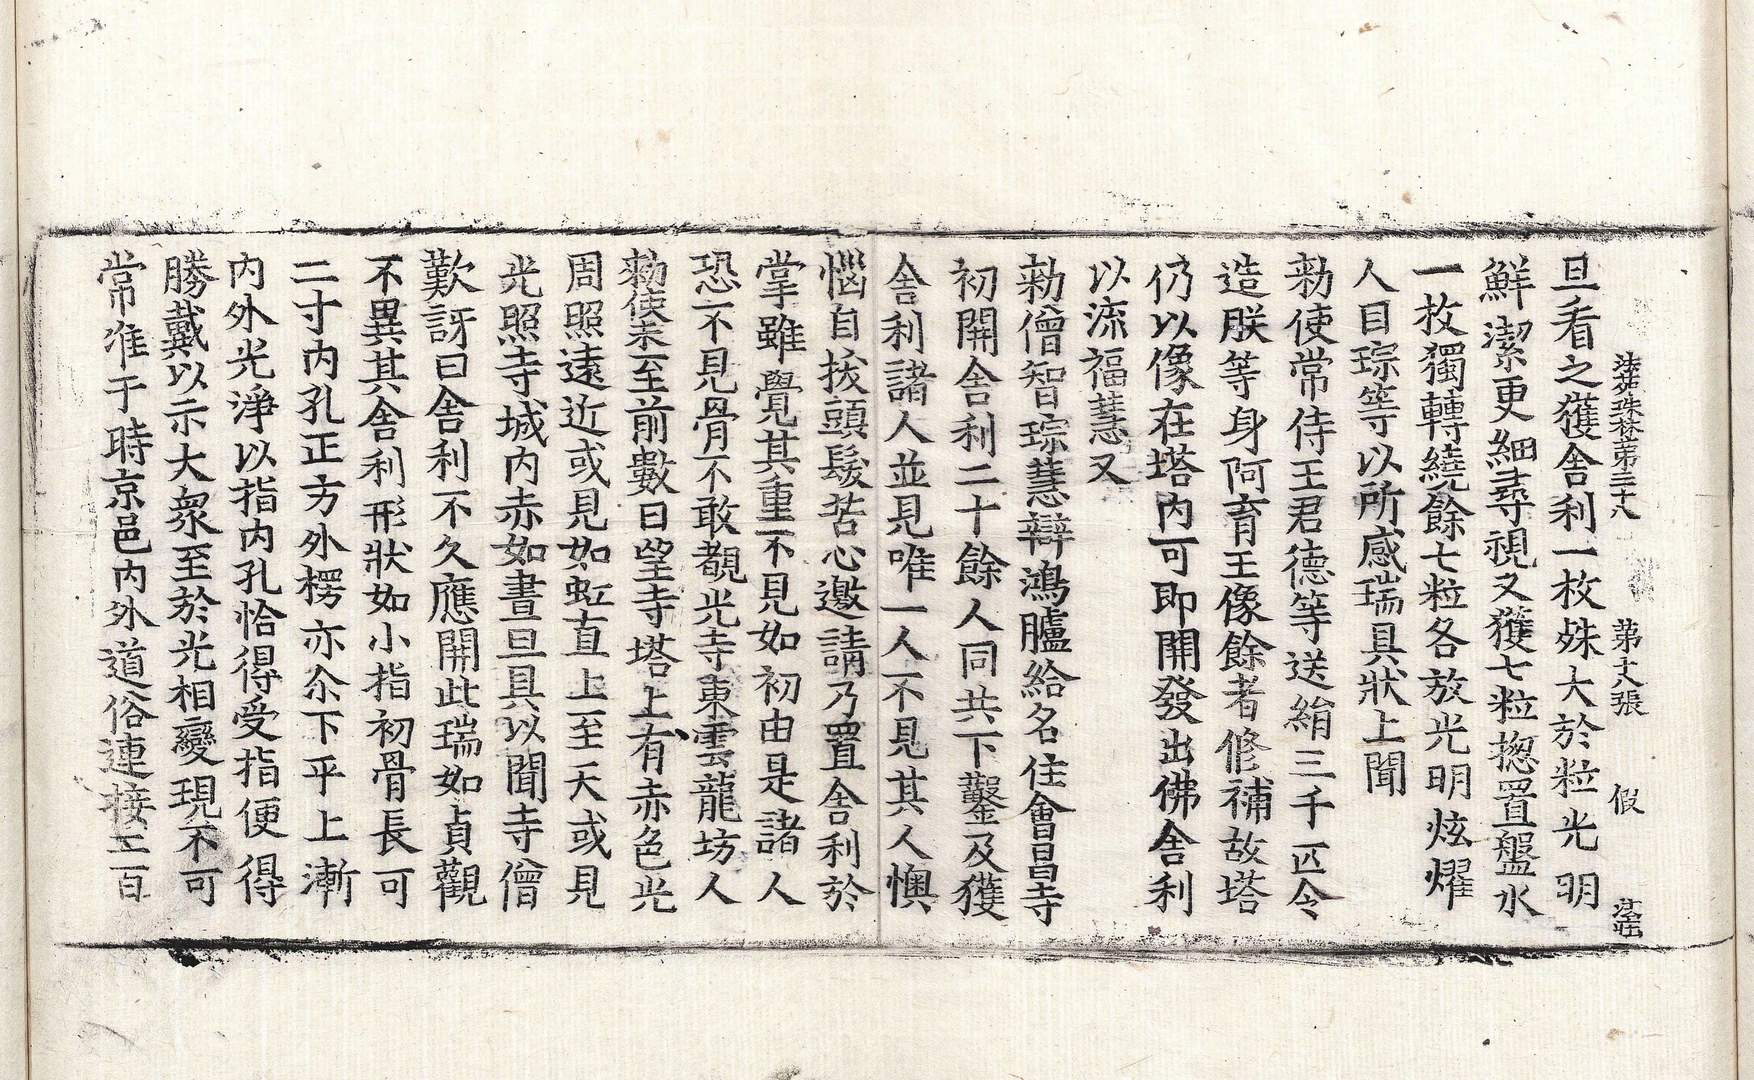 法苑珠林第三十八　第十八張　假
旦看之獲舍利一枚殊大於粒光明
鮮潔更細尋視又獲七粒揔置盤水
一枚獨轉繞餘七粒各放光明炫燿
人目琮等以所感瑞具狀上聞
勑使常侍王君德等送絹三千匹令
造朕等身阿育王像餘者修補故塔
仍以像在塔內可即開發出佛舍利
以流福慧又
勑僧智琮慧辯鴻臚給名住會昌寺
初開舍利二十餘人同共下鑿及獲
舍利諸人並見唯一人不見其人懊
惱自拔頭髮苦心邀請乃置舍利於
掌雖覺其重不見如初由是諸人
恐不見骨不敢覩光寺東雲龍坊人
勑使未至前數日望寺塔上有赤色光
周照遠近或見如虹直上至天或見
光照寺城內赤如晝旦具以聞寺僧
歎訝曰舍利不久應開此瑞如貞觀
不異其舍利形狀如小指初骨長可
二寸內孔正方外楞亦尒下平上漸
內外光淨以指內孔恰得受指便得
勝戴以示大衆至於光相變現不可
常准于時京邑內外道俗連接二百